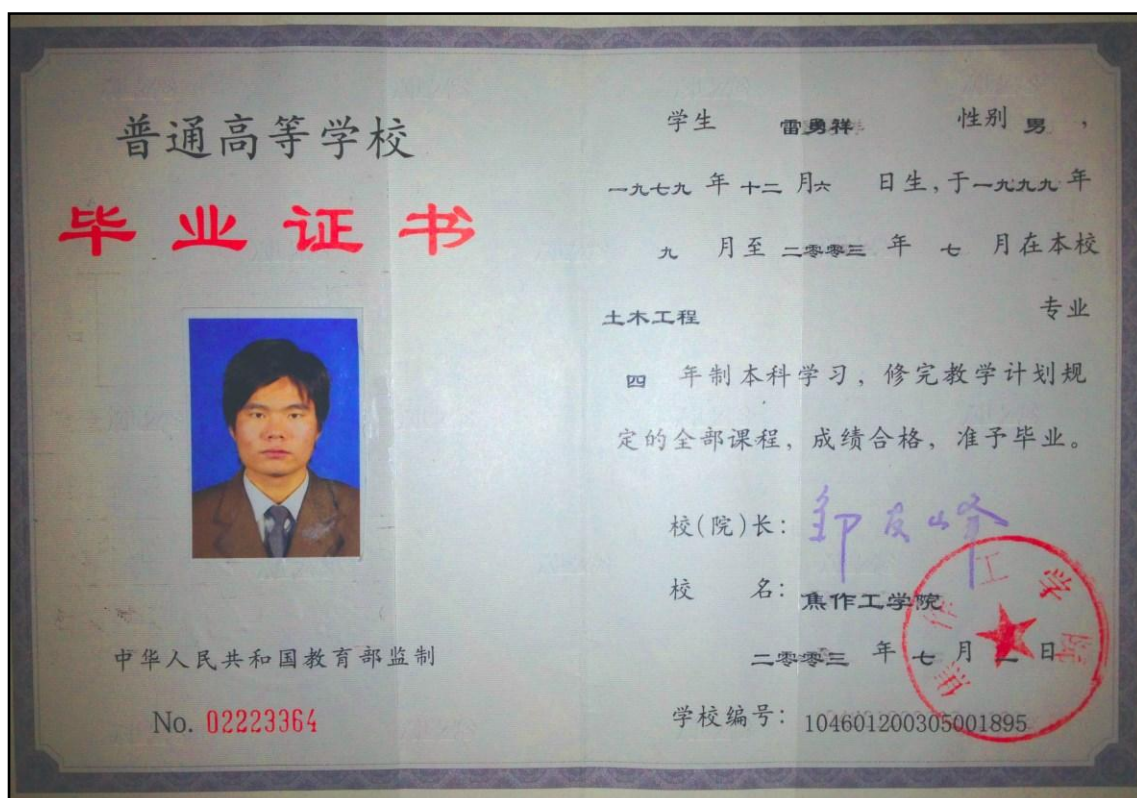 普通高等学校
毕业证书
中华人民共和国教育部监制
No. 02223364
学生 雷勇祥 性别 男，
一九七九 年 十二 月 六 日生，于 一九九九 年
九 月至 二零零三 年 七 月在本校
土木工程 专业
四 年制本科学习，修完教学计划规
定的全部课程，成绩合格，准予毕业。
校(院)长： 邹友峰
校 名： 焦作工学院
二零零三 年 七 月 日
学校编号： 104601200305001895
焦作工学院